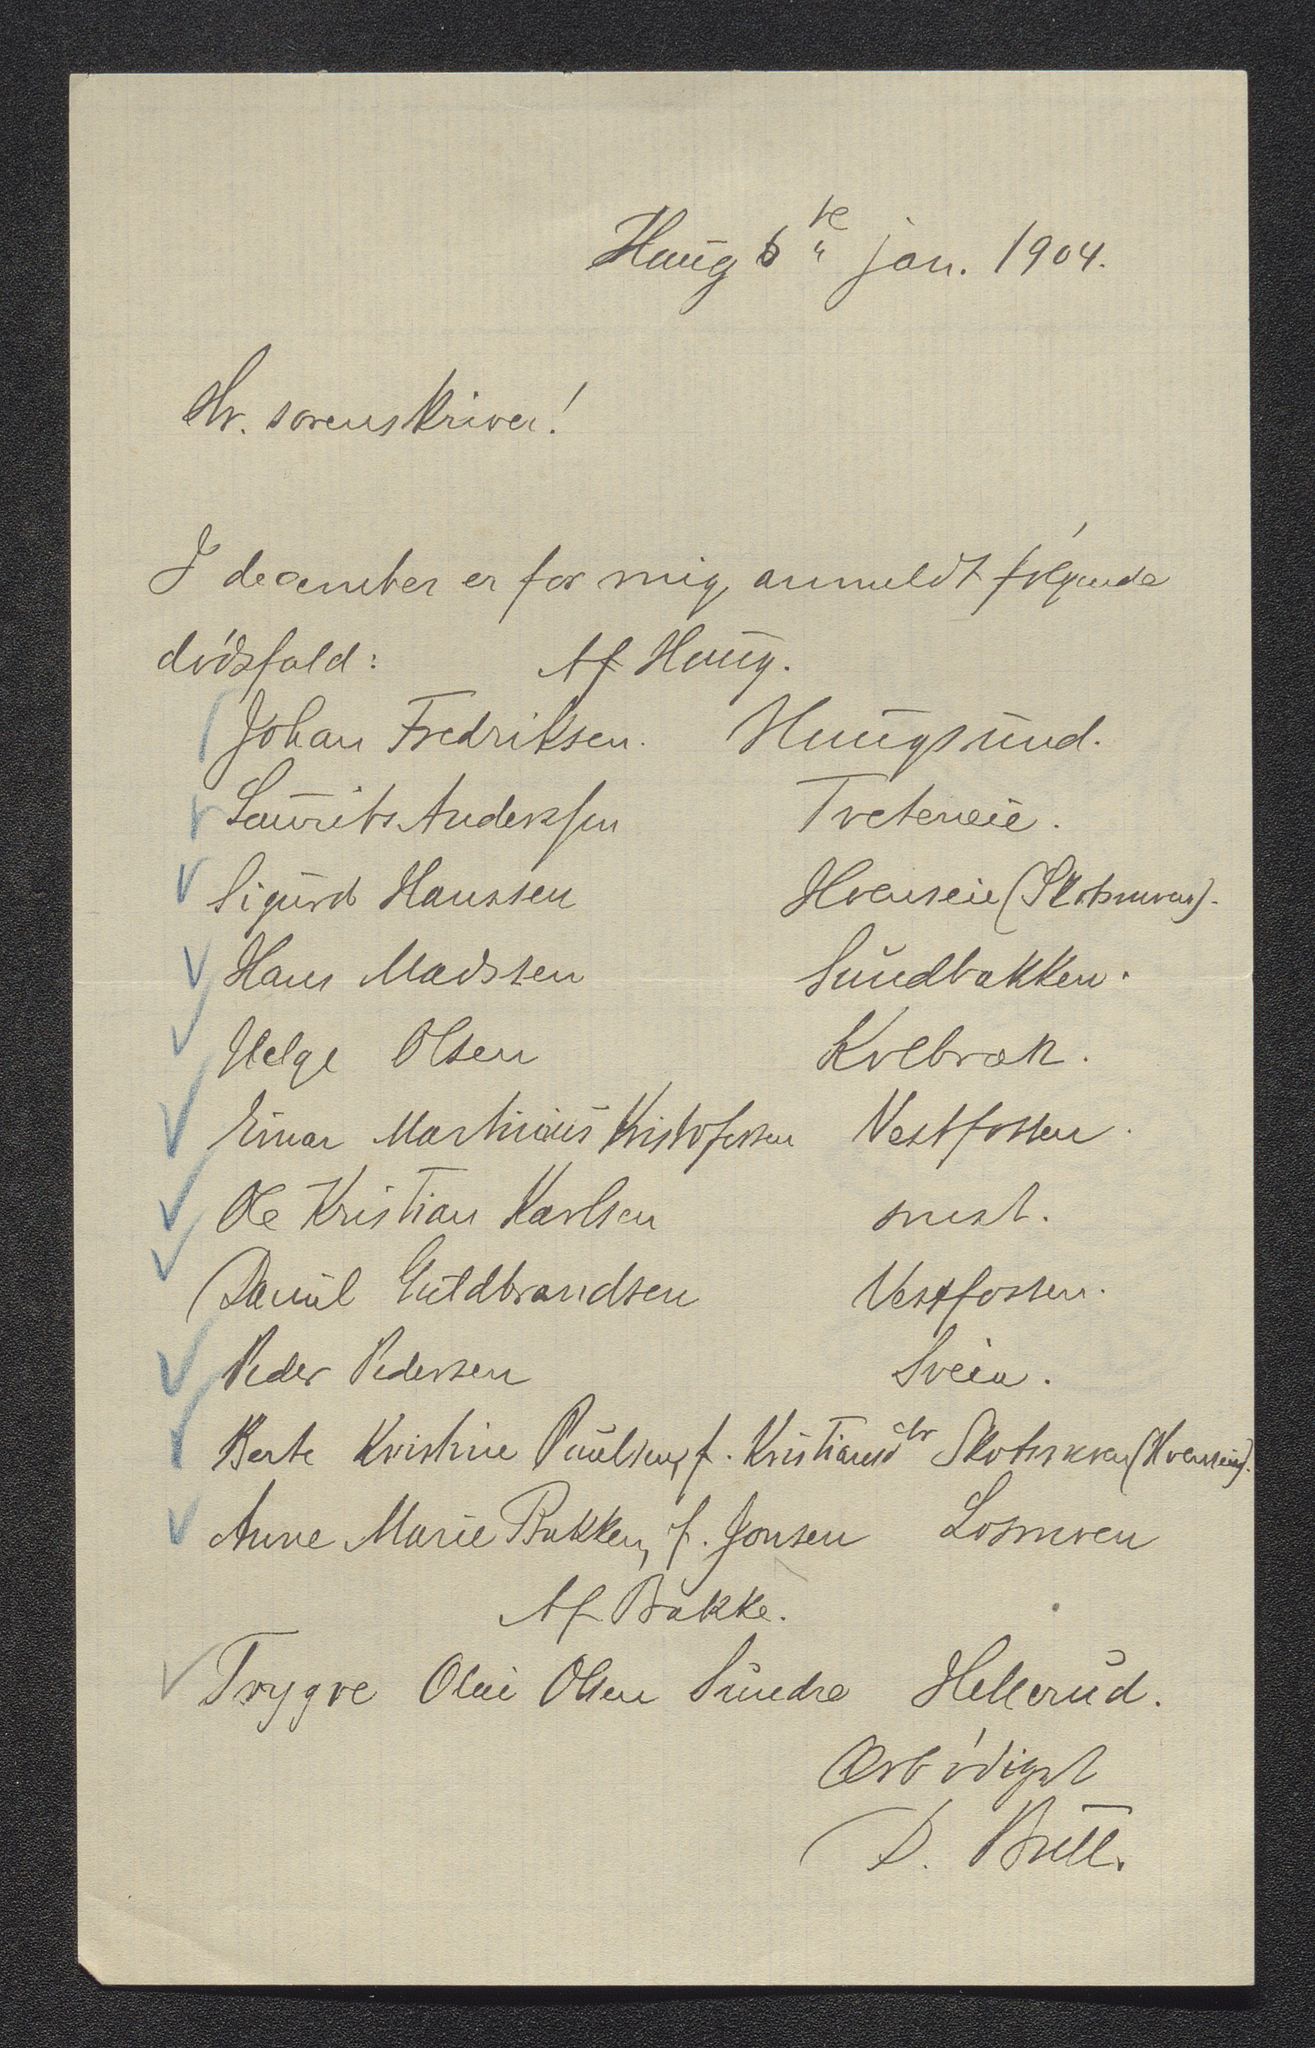 Haug 6te jan. 1904.
Hr. sorenskriver!
I december er for mig anmeldt følgende
dødsfald: Af Haug.
Johan Fredriksen. Haugsund.
Laurits Anderssen Tveteneie.
Sigurd Hanssen Hvenseie (Skotsmoen).
Hans Madssen Sundbakken.
Helge Olsen Kolbræk.
Einar Martinius Kristofersen Vestfossen.
Ole Kristian Karlsen smst.
Daniel Guldbrandsen Vestfossen.
Peder Pedersen Sveia.
Berte Kristine Paulsen, f. Kristiansdtr (Hvenseie).
Anne Marie Bakken, f. Jonsen Losmoen
Af Bakke.
Trygve Olai Olsen Sundre Hellerud.
Ærbødigst
D. Bull.